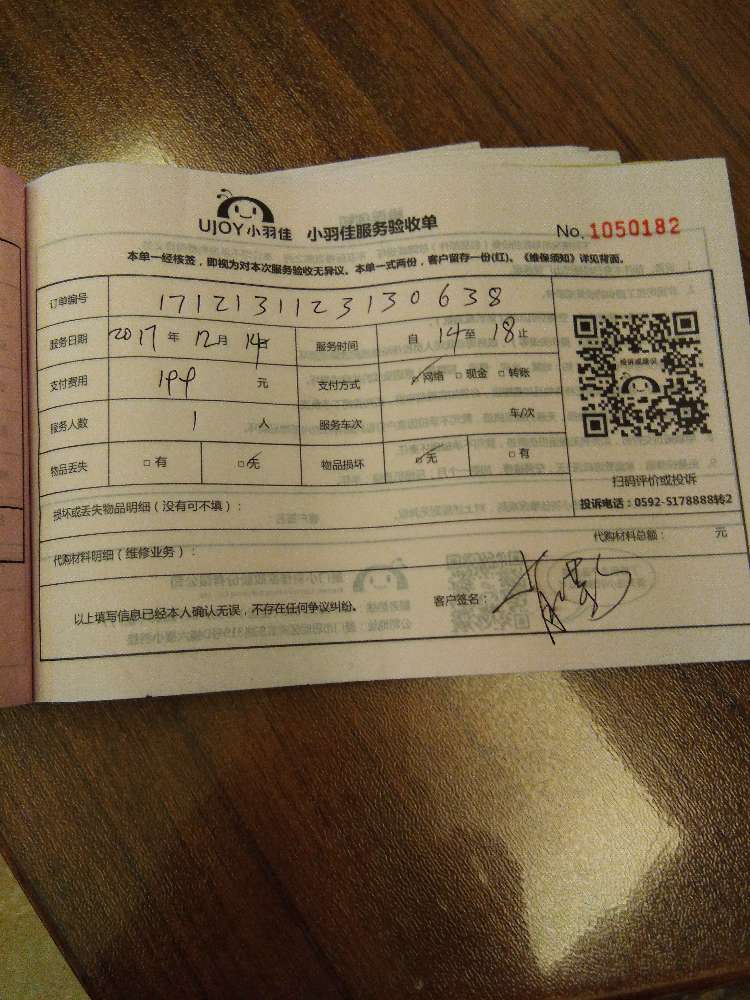 UJOY小羽佳 小羽佳服务验收单 No. 1050182
本单一经核签，即视为对本次服务验收无异议。本单一式两份，客户留存一份(红)。《维保须知》详见背面。
订单编号 1712131123130638
服务日期 2017 年 12 月 14 日 服务时间 自 14 至 18 止
支付费用 199 元 支付方式 □ 网络 □ 现金 □ 转账
服务人数 1 人 服务车次 车/次
物品丢失 □ 有 □ 无 物品损坏 □ 无 □ 有
投诉或建议
扫码评价或投诉
投诉电话：0592-5178888转2
损坏或丢失物品明细（没有可不填）：
代购材料明细（维修业务）： 代购材料总额： 元
以上填写信息已经本人确认无误，不存在任何争议纠纷。 客户签名：